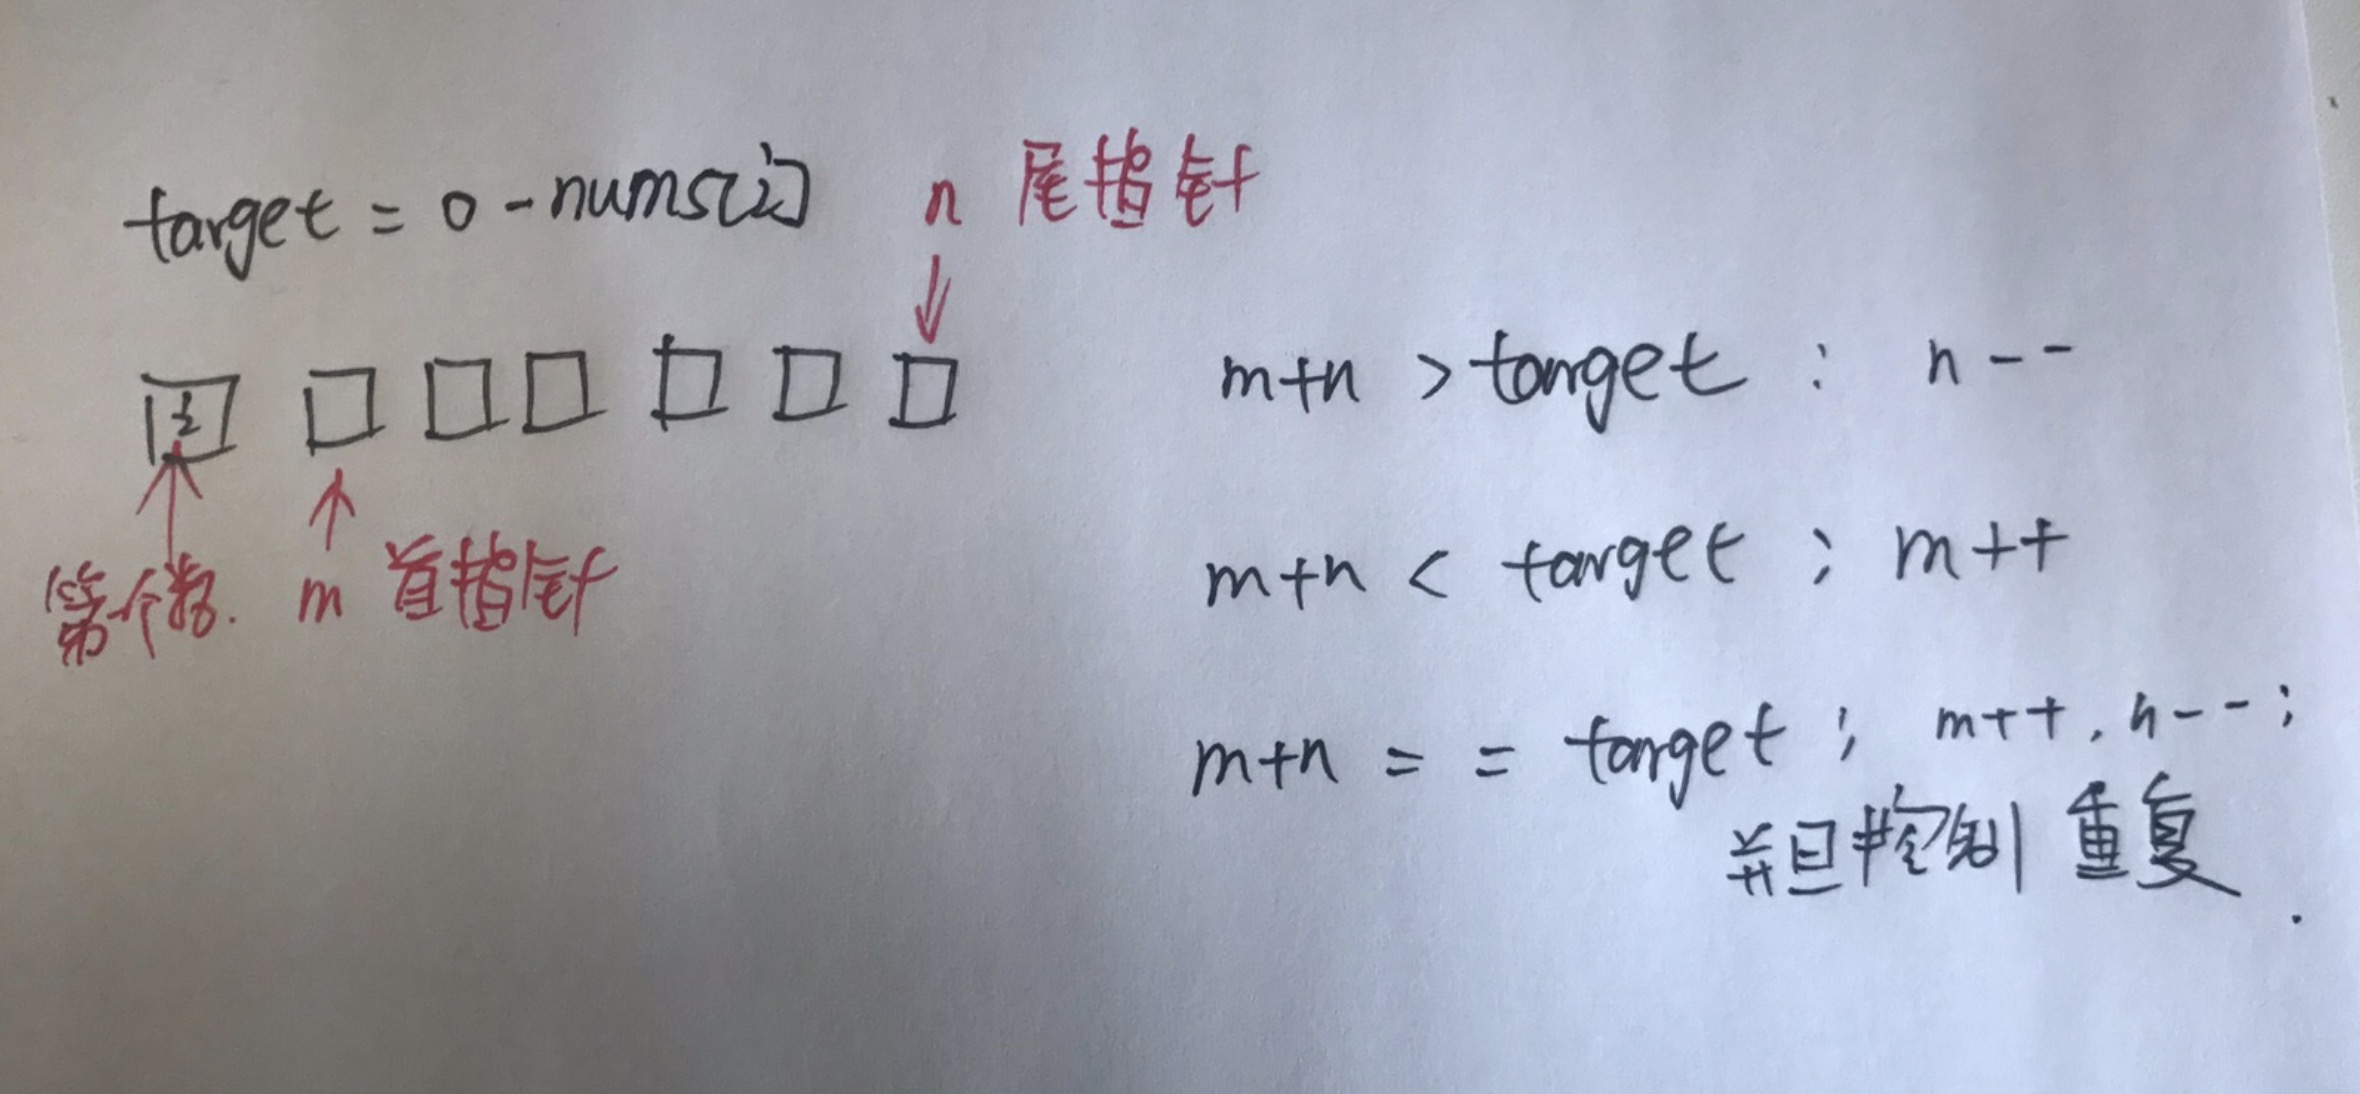 target = 0 - nums[i]
n 尾指针
i
第一个数.
m 首指针
m+n > target : n--
m+n < target ; m++
m+n == target ; m++, n--;
并且控制重复.